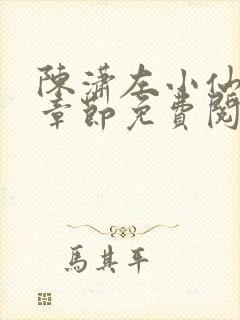 陳瀟左小仙
章節免費閱
馬其平